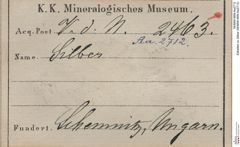 K. K. Mineralogisches Museum.
Acq. Post V. d. N. 2463.
An. 2712.
Name Silber
Fundort. Schemnitz, Ungarn.